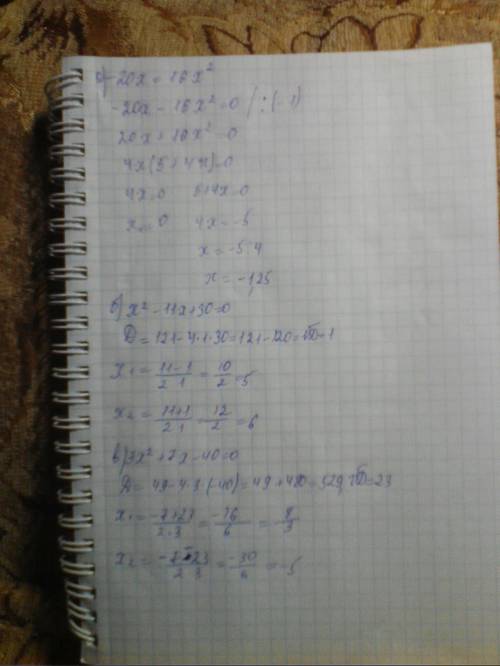 а) -20x = 16x²
-20x - 16x² = 0 / :(-1)
20x + 16x² = 0
4x(5 + 4x) = 0
4x = 0 5+4x = 0
x = 0 4x = -5
x = -5:4
x = -1,25
б) x² - 11x + 30 = 0
D = 121 - 4·1·30 = 121 - 120 = √D = 1
x₁ = (11-1)/(2·1) = 10/2 = 5
x₂ = (11+1)/(2·1) = 12/2 = 6
в) 3x² + 7x - 40 = 0
D = 49 - 4·3·(-40) = 49 + 480 = 529 √D = 23
x₁ = (-7+23)/(2·3) = -16/6 = 8/3
x₂ = (-7-23)/(2·3) = -30/6 = -5